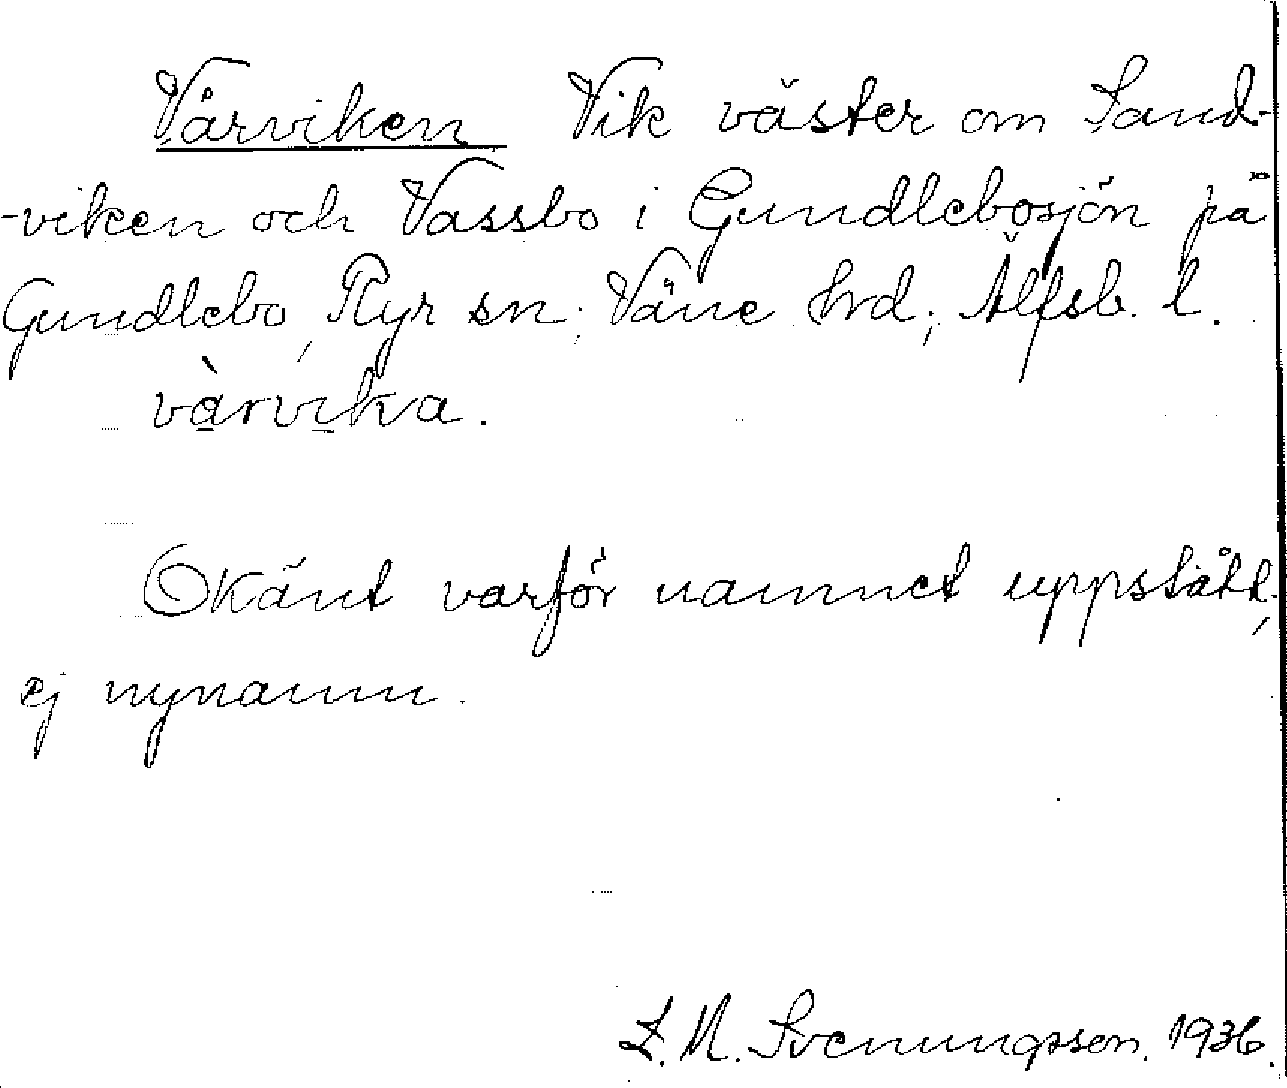 Vårviken Vik väster om Sand-
-viken och Vassbo i Gundlebosjön på
Gundlebo, Ryr sn; Väne hrd; Älfsb. l.
vàrvika.
Okänt varför namnet uppstått,
ej nynamn.
L. M. Svenungsson. 1936.